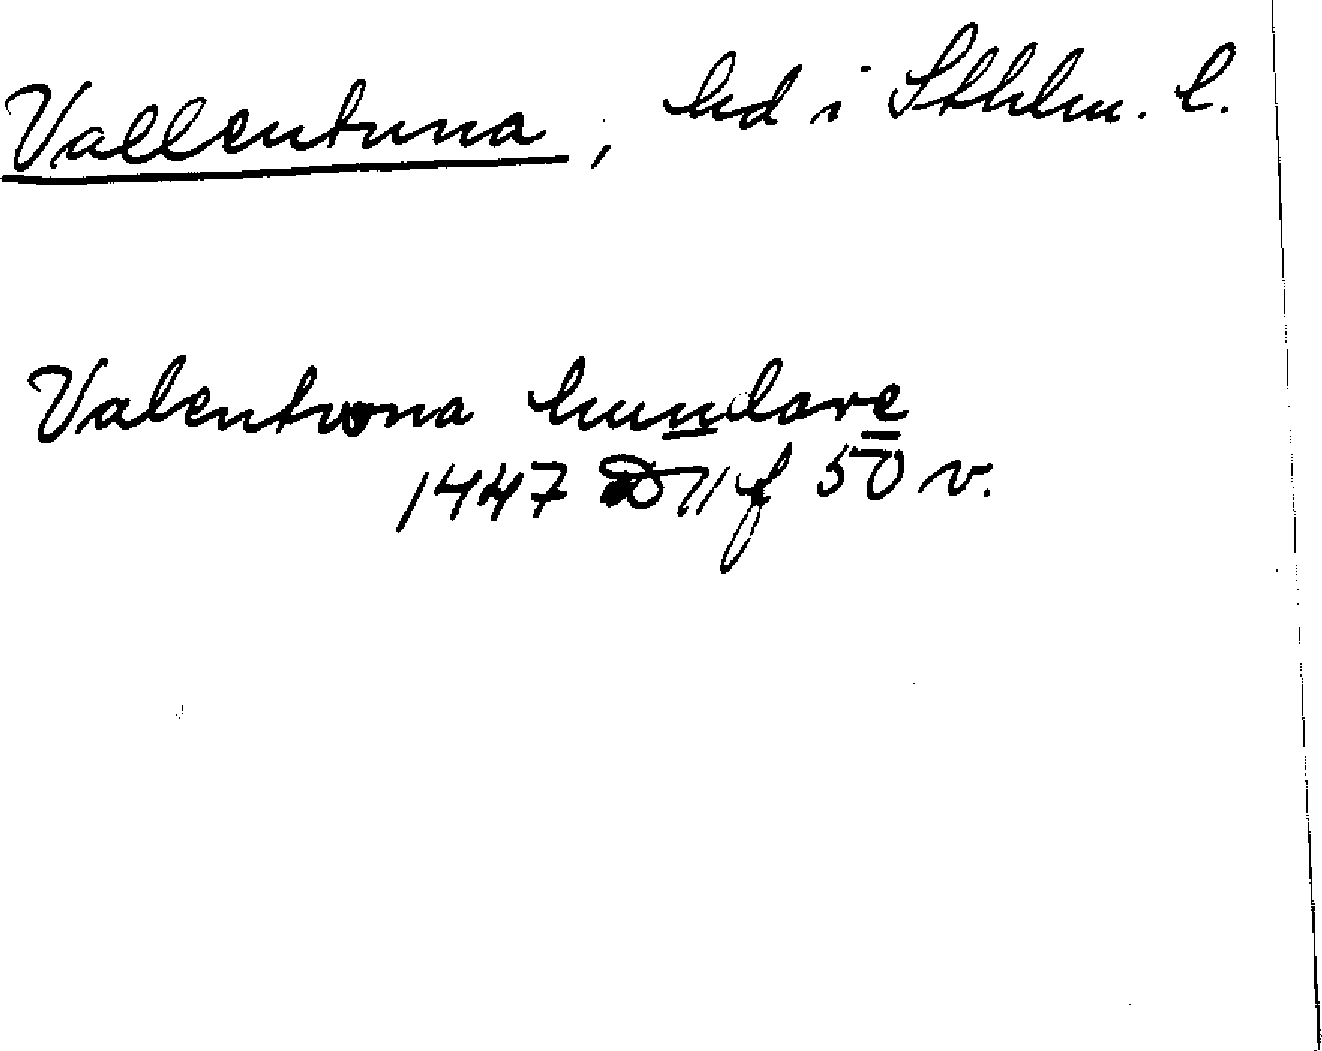 Vallentuna, hd i Sthlm. l.
Valentvna hundare
1447 D 11 f 50 v.